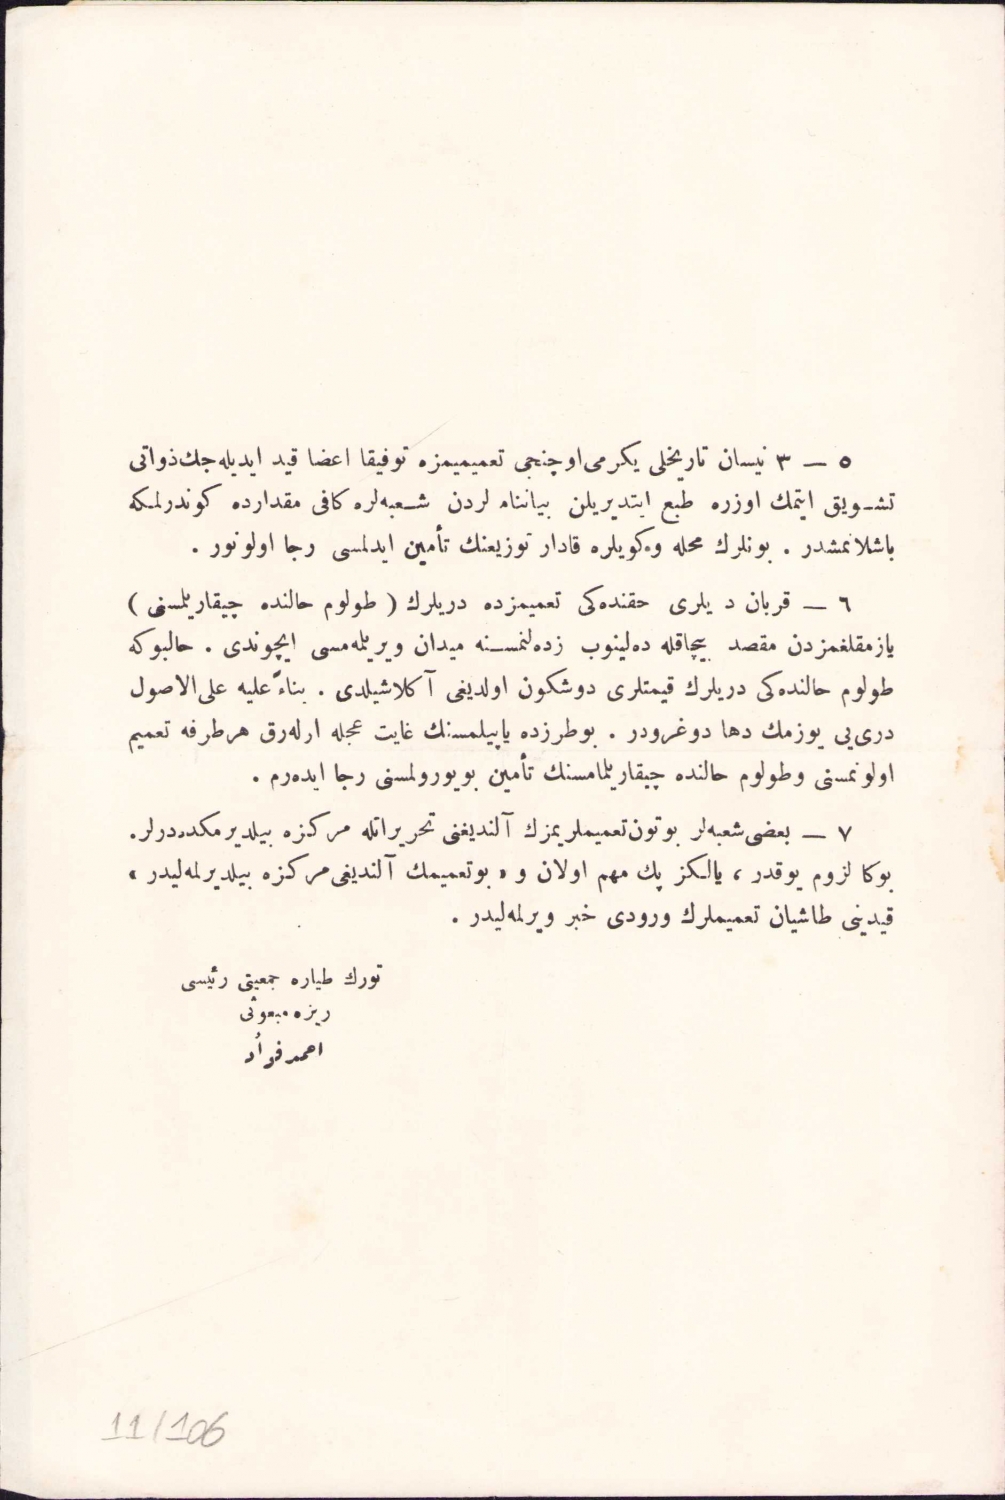 ٥ — ٣ نيسان تاريخلى يكرمى اوچنجى تعميميمزه توفيقا اعضا قيد ايديله‌جك ذواتى
تشويق ايتمك اوزره طبع ايتديريلن بياننامه لردن شعبه‌لره كافى مقدارده كوندرلمكه
باشلانمشدر . بونلرك محله وكويلره قادار توزيعنك تأمين ايدلمسى رجا اولونور .
٦ — قربان د يلرى حقنده‌كى تعميمزده دريلرك ( طولوم حالنده چيقاريلمسنى )
يازمقلغمزدن مقصد بيچاقله ده‌لينوب زده‌لنمسنه ميدان ويريلمه‌مسى ايچوندى . حالبوكه
طولوم حالنده‌كى دريلرك قيمتلرى دوشكون اولديغى آكلاشيلدى . بناءً عليه على الاصول
درى‌يى يوزمك دها دوغرودر . بوطرزده ياپيلمسنك غايت عجله ارله‌رق هرطرفه تعميم
اولونمسنى وطولوم حالنده چيقاريلمامسنك تأمين بويورولمسنى رجا ايده‌رم .
٧ — بعضى شعبه‌لر بوتون تعميملريمزك آلنديغنى تحريراتله مركزه بيلديرمكده‌درلر.
بوكا لزوم يوقدر ، يالكز پك مهم اولان و « بوتعميمك آلنديغى مركزه بيلديرلمه‌ليدر »
قيدينى طاشيان تعميملرك ورودى خبر ويرلمه‌ليدر .
تورك طياره جمعيتى رئيسى
ريزه مبعوثى
احمد فؤاد
11/106